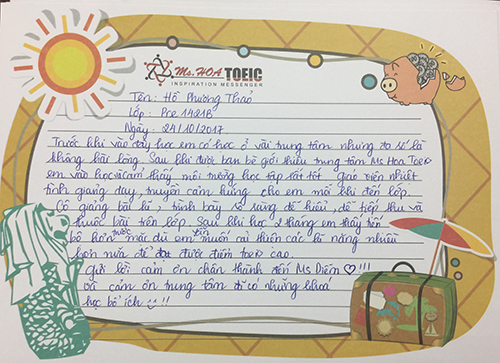 Ms.HOA TOEIC
INSPIRATION MESSENGER
Tên: Hồ Phương Thảo
Lớp: Pre 142AB
Ngày: 24/10/2017
Trước khi vào đây học em có học ở vài trung tâm nhưng đa số là
không hài lòng. Sau khi được bạn bè giới thiệu trung tâm Ms Hoa Toeic
em vào học và cảm thấy môi trường học tập rất tốt giáo viên nhiệt
tình giảng dạy, truyền cảm hứng cho em mỗi khi đến lớp.
Cô giảng bài kĩ, trình bày rõ ràng dễ hiểu, dễ tiếp thu và
thuộc bài trên lớp. Sau khi học 2 tháng em thấy tiến
bộ hơn trước mặc dù em muốn cải thiện các kĩ năng nhiều
hơn nữa để đạt được điểm toeic cao.
Gửi lời cảm ơn chân thành đến Ms Diễm ♡!!!
và cảm ơn trung tâm đã có những khoá
học bổ ích !!